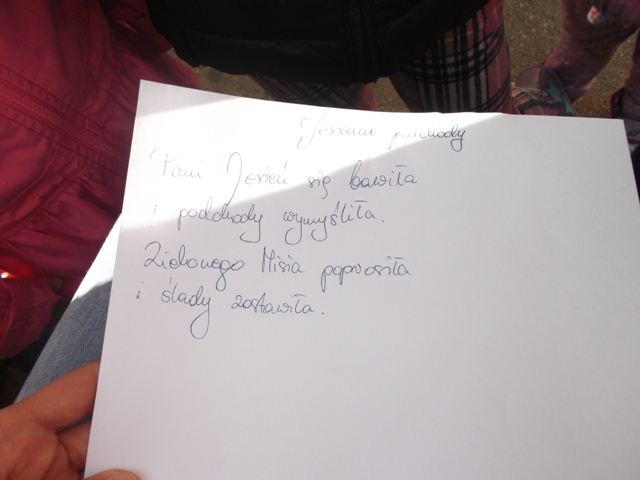 Jesienne podchody
Pani Jesień się bawiła
i podchody wymyśliła.
Zielonego Misia poprosiła
i ślady zostawiła.